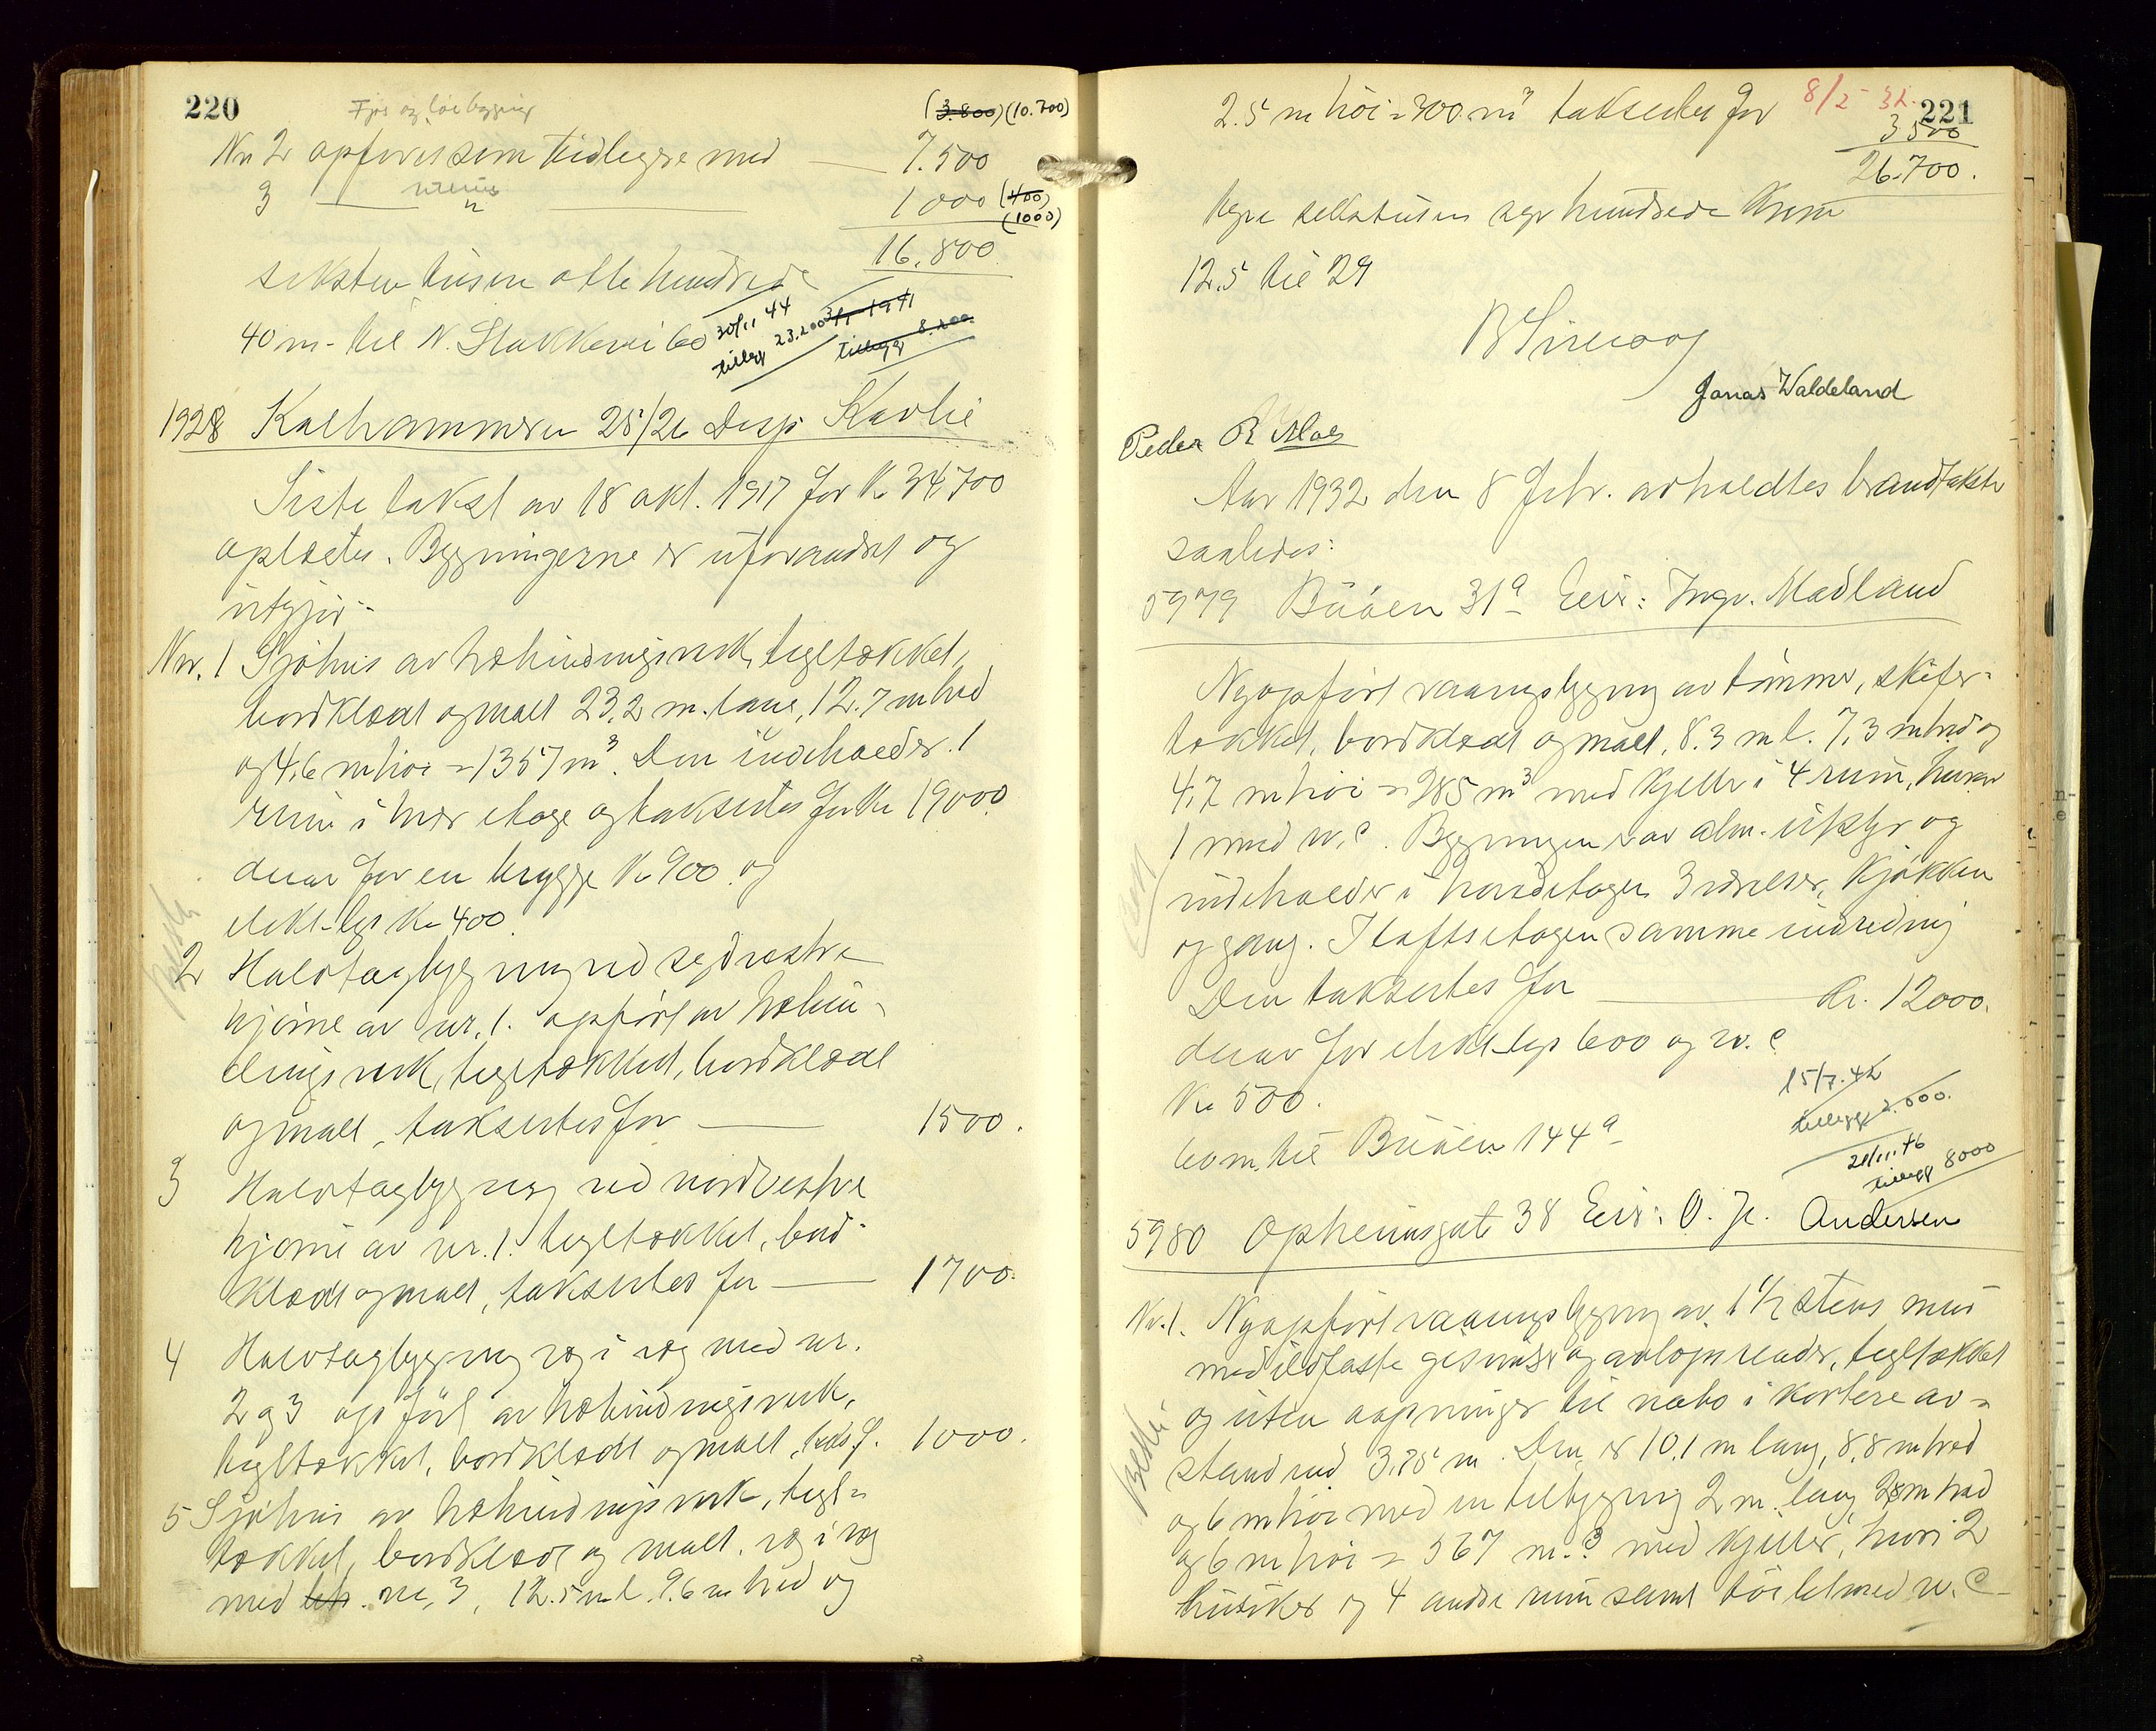 220
Fjøs og løebygning
(3.800) (10.700)
Nr 2 opføres som tidligere med — 7.500
3 — " — 1000 (400)
(1000)
16.800
seksten tusen otte hundrede
40 m. til N. Stokkavei 60
30/11 44
tillegg 23.200
1941
tillegg 8.200
1928 Kalhammeren 25/26 Disp. Kavli
Siste takst av 18 okt. 1917 for Kr 34700
oplæstes. Bygningerne er uforandret og
utgjør:
Nr. 1 Sjøhus av utbindingsverk, tegltækket,
bordklædt og malt 23,2 m. lang, 12.7 m bred
og 4,6 m høi = 1357 m³. Den indeholder 1
rum i hver etage og taksertes for Kr 19000.
derav for en brygge Kr 900 og
elekt. lys Kr 400.
2 Halvtagbygning ved sydvestre
hjørne av nr. 1. opført av utbin-
dingsverk, tegltækket, bordklædt
og malt, taksertes for — 1500.
3 Halvtagbygning ved nordvestre
hjørne av nr. 1. tegltækket, bord-
klædt og malt, taksertes for — 1700.
4 Halvtagbygning væg i væg med nr.
2 og 3 opført av utbindingsverk,
tegltækket, bordklædt og malt, taks. f. 1000.
5 Sjøhus av utbindingsverk, tegl-
tækket, bordklædt og malt. væg i væg
med nr. 3, 12.5 m l. 9.6 m bred og
221
8/2 32.
2.5 m høi = 300 m³ taksertes for 3500
26.700.
tyve seks tusen syv hundrede Kroner
12.5 til 29
Jonas Waldeland
Peder R Aloes
Aar 1932 den 8 Febr. avholdtes brandtakster
saaledes:
5979 Buøen 31a Eier: Ingv. Madland
Nyopført vaaningsbygning av tømmer, skifer-
tækket, bordklædt og malt, 8.3 m l. 7,3 m bred og
4,7 m høi = 285 m³ med kjeller i 4 rum, hvorav
1 med w.c. Bygningen er av alm. utstyr og
indeholder i hovedetagen 3 værelser, kjøkken
og gang. I loftsetagen samme indredning
Den taksertes for — Kr. 12000.
derav for elekt. lys 600 og w.c
Kr 500.
60 m. til Buøen 144a
15/7. 42
tillegg 2.000.
21/11.46
tillegg 8000
5980 Opheimsgate 38 Eier: O. Fr. Andersen
Nr. 1. Nyopført vaaningsbygning av 1 1/2 stens mur
med ildfaste gesimser og avløpsrender, tegltækket
og uten aapninger til nabo i kortere av-
stand end 3.75 m. Den er 10,1 m lang, 8,8 m bred
og 6 m høi med en tilbygning 2 m. lang, 2,8 m bred
og 6 m høi = 567 m.³ med kjeller, hvori 2
butiker og 4 andre rum samt toilet med w.c